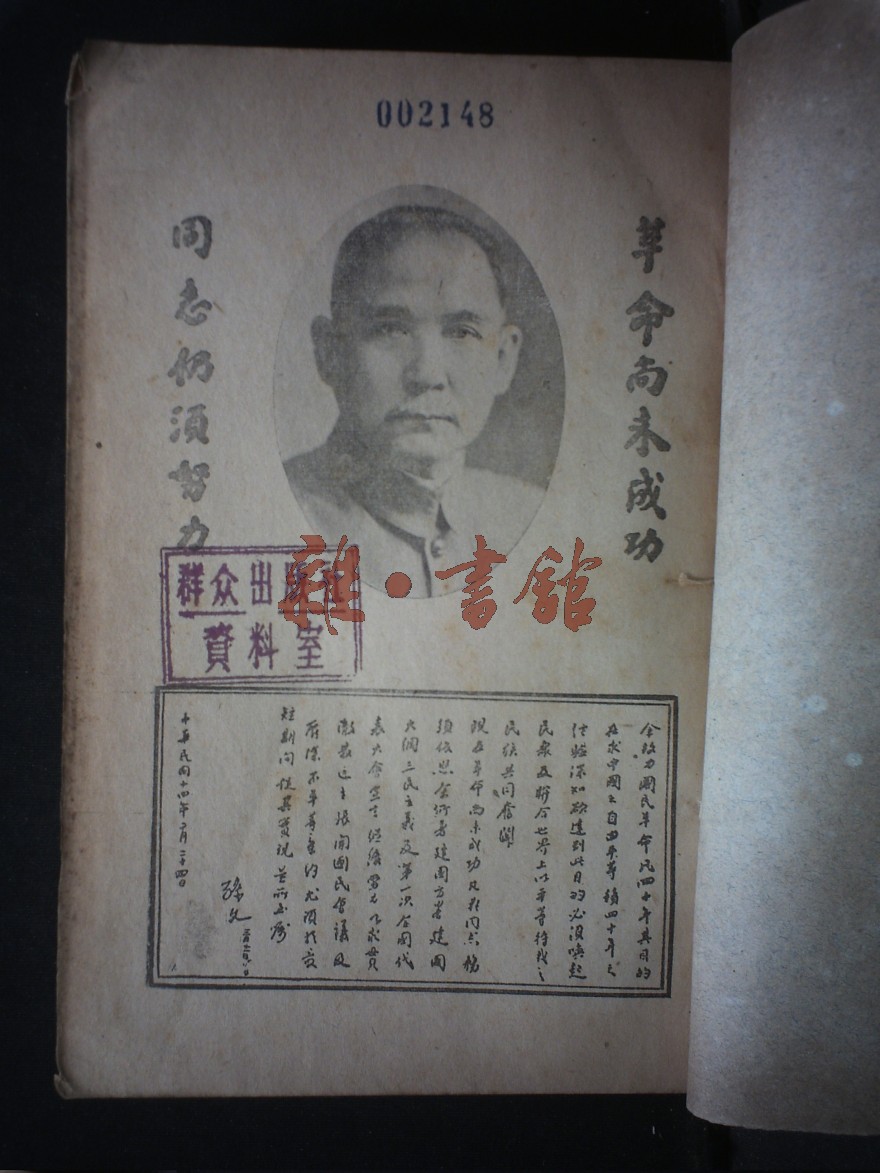 002148
革命尚未成功
同志仍須努力
群众出版社
資料室
雜·書館
余致力國民革命凡四十年其目的
在求中國之自由平等積四十年之
經驗深知欲達到此目的必須喚起
民衆及聯合世界上以平等待我之
民族共同奮鬥
現在革命尚未成功凡我同志務
須依照余所著建國方畧建國
大綱三民主義及第一次全國代
表大會宣言繼續努力以求貫
徹最近主張開國民會議及
廢除不平等條約尤須於最
短期間促其實現是所至囑
孫文 三月十一日
中華民國十四年二月二十四日